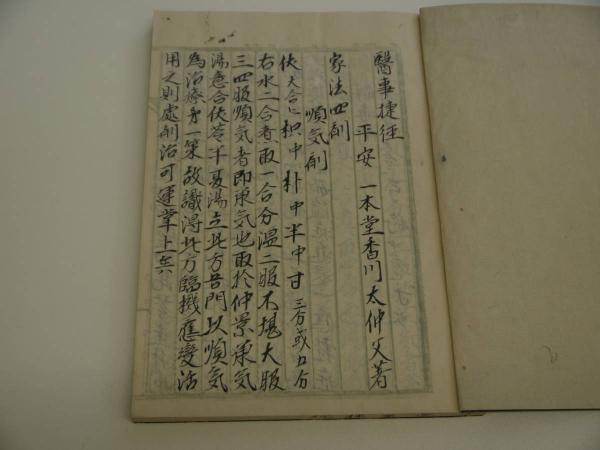 醫事捷徑
平安 一本堂香川太仲父著
家法四劑
順気劑
伏大合 枳中 朴中半中甘 三分或五分
右水二合煮取一合分温二服不堪大服
三四服順気者即承気也取於仲景承気
湯意合伏苓半夏湯立此方吾門以順気
為治療第一策故識得此方臨機應變活
用之則處劑治可運掌上矣